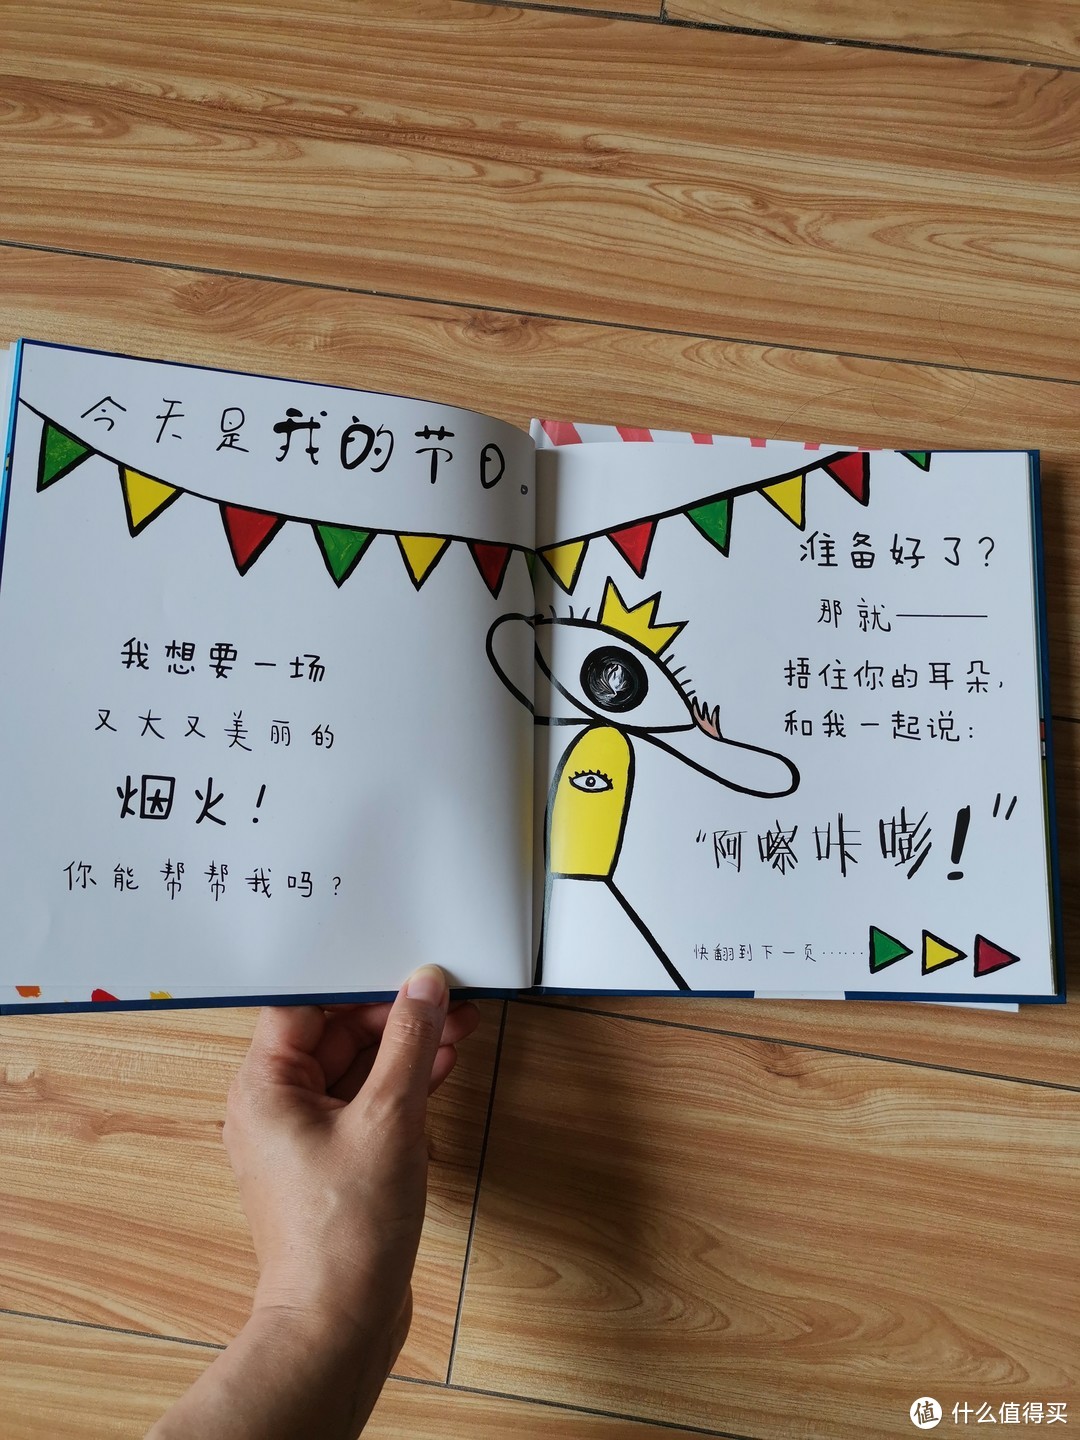 今天是我的节日。
我想要一场
又大又美丽的
烟火！
你能帮帮我吗？
准备好了？
那就——
捂住你的耳朵，
和我一起说：
“阿嚓咔嘭！”
快翻到下一页……
值 什么值得买